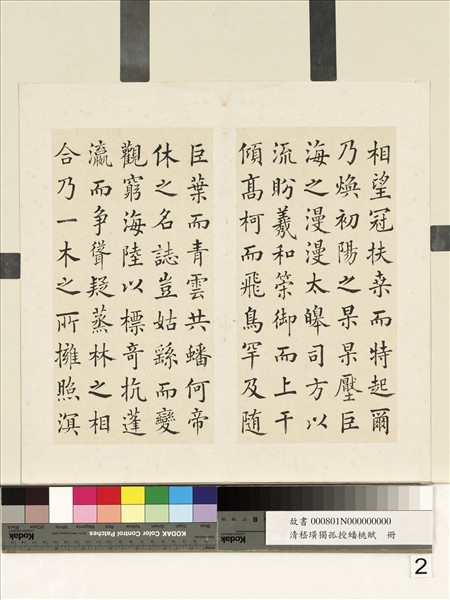 相望冠扶桒而特起爾
乃煥初陽之杲杲壓巨
海之漫漫太皞司方以
流盼羲和筞御而上干
傾髙柯而飛鳥罕及随
巨葉而青雲共蟠何帝
休之名誌豈姑繇而變
觀窮海陸以標竒抗蓬
瀛而争聳疑蒸林之相
合乃一木之所擁照溟
KODAK Color Control Patches
Kodak
故書 000801N000000000
清嵇璜獨孤授蟠桃賦 冊
2